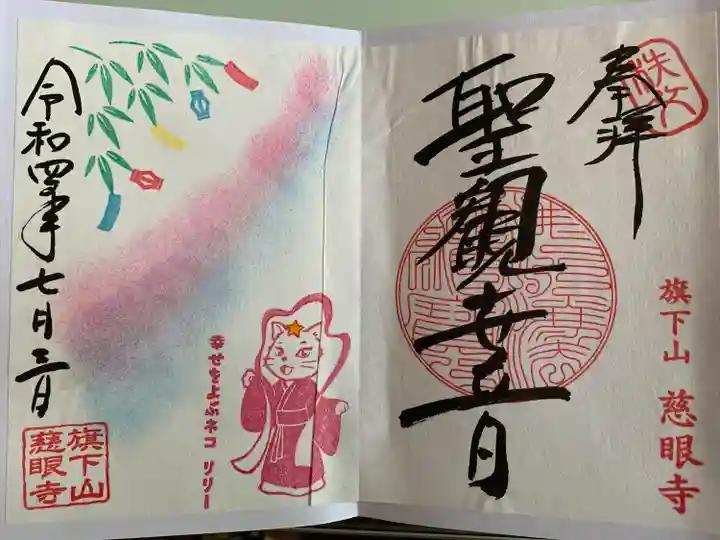 奉拝
秩父
聖観世音
旗下山 慈眼寺
令和四年七月三日
幸せをよぶネコ リリー
旗下山
慈眼寺